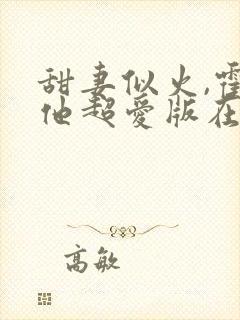 甜妻似火,霍
他超爱版在
高敏